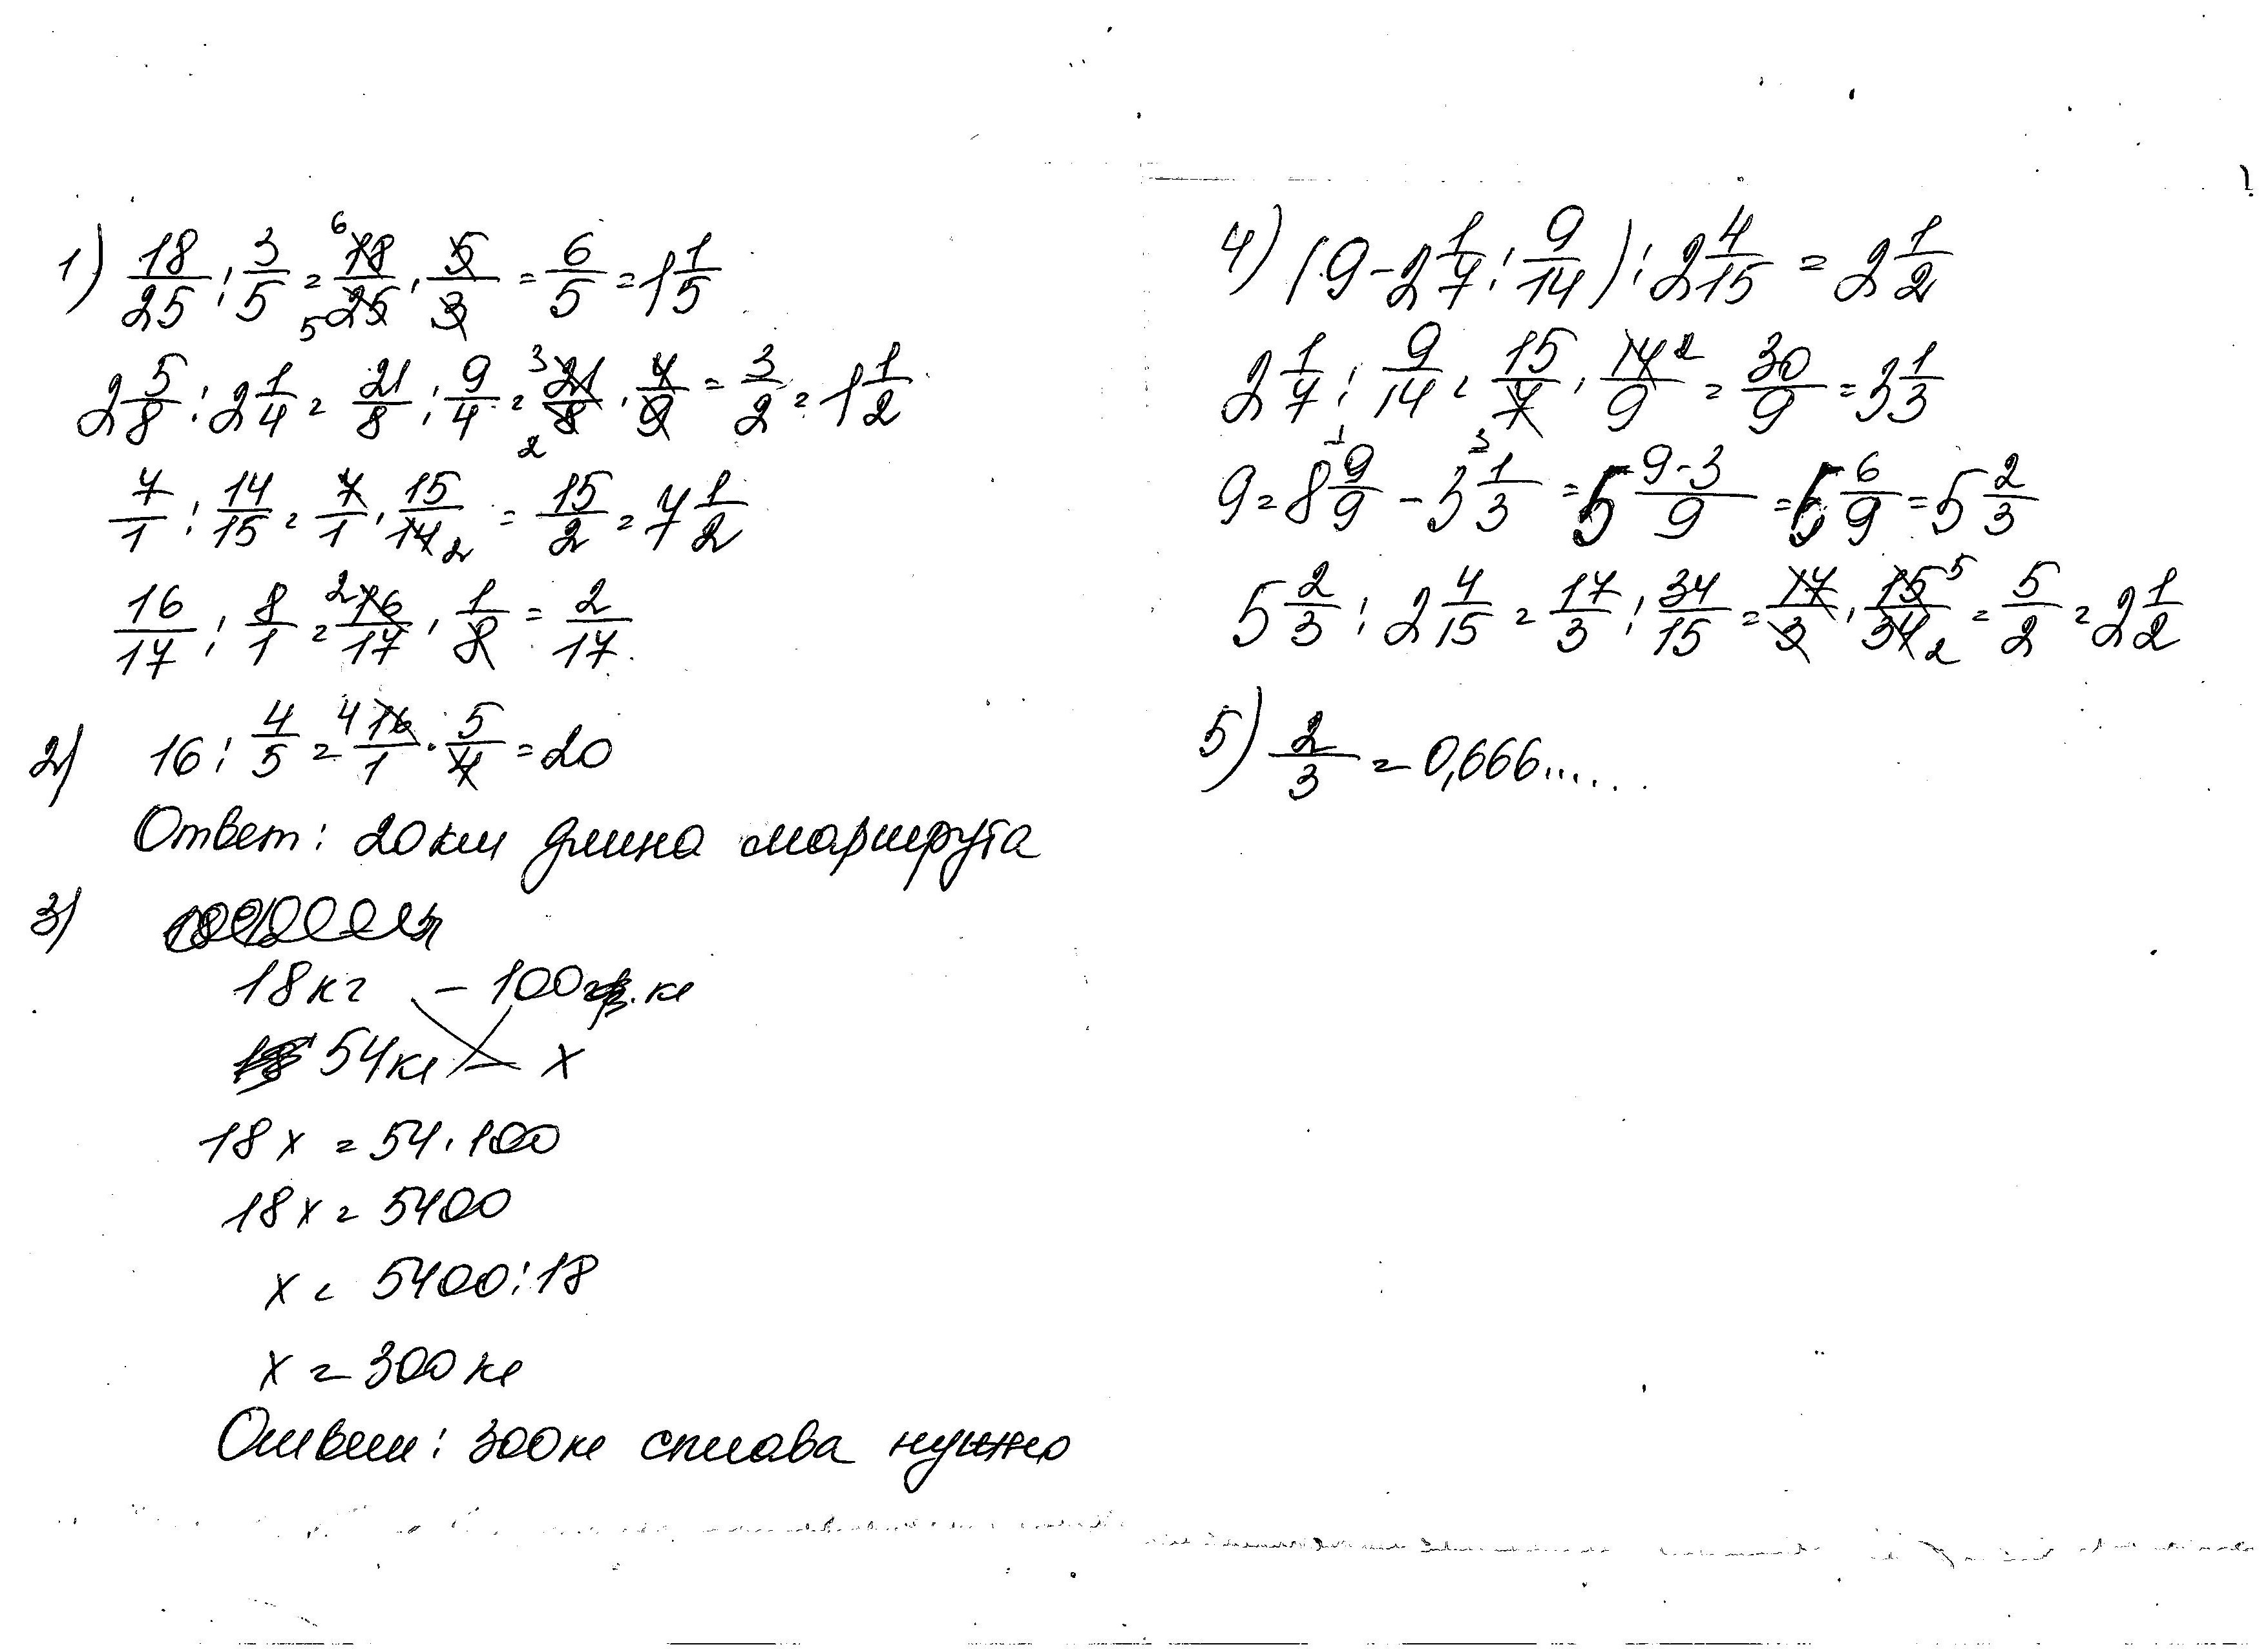 1) 18/25 : 3/5 = 18/25 · 5/3 = 6/5 = 1 1/5
2 5/8 : 2 1/4 = 21/8 : 9/4 = 21/8 · 4/9 = 3/2 = 1 1/2
7/1 : 14/15 = 7/1 · 15/14 = 15/2 = 7 1/2
16/17 : 8/1 = 16/17 · 1/8 = 2/17
2) 16 : 4/5 = 16/1 · 5/4 = 20
Ответ: 20км длина маршрута
3)
18кг – 100 кг
54кг – х
18х = 54 · 100
18х = 5400
х = 5400 : 18
х = 300 кг
Ответ: 300кг сплава нужно
4) (9 - 2 1/7 : 9/14) : 2 4/15 = 2 1/2
2 1/7 : 9/14 = 15/7 · 14/9 = 30/9 = 3 1/3
9 = 8 9/9 - 3 1/3 = 5 9-3/9 = 5 6/9 = 5 2/3
5 2/3 : 2 4/15 = 17/3 : 34/15 = 17/3 · 15/34 = 5/2 = 2 1/2
5) 2/3 = 0,666......